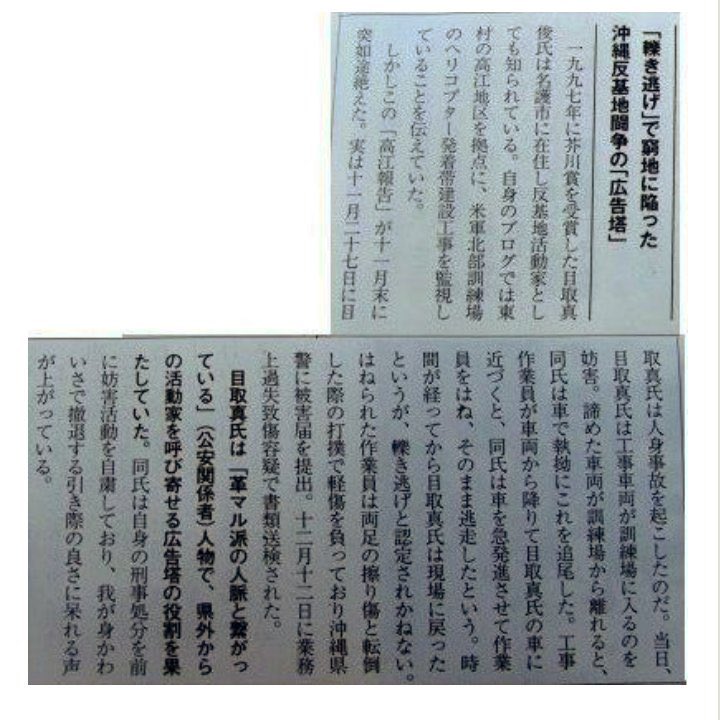 「轢き逃げ」で窮地に陥った
沖縄反基地闘争の「広告塔」
一九九七年に芥川賞を受賞した目取真
俊氏は名護市に在住し反基地活動家とし
ても知られている。自身のブログでは東
村の高江地区を拠点に、米軍北部訓練場
のヘリコプター発着帯建設工事を監視し
ていることを伝えていた。
しかしこの「高江報告」が十一月末に
突如途絶えた。実は十一月二十七日に目
取真氏は人身事故を起こしたのだ。当日、
目取真氏は工事車両が訓練場に入るのを
妨害。諦めた車両が訓練場から離れると、
同氏は車で執拗にこれを追尾した。工事
作業員が車両から降りて目取真氏の車に
近づくと、同氏は車を急発進させて作業
員をはね、そのまま逃走したという。時
間が経ってから目取真氏は現場に戻った
というが、轢き逃げと認定されかねない。
はねられた作業員は両足の擦り傷と転倒
した際の打撲で軽傷を負っており沖縄県
警に被害届を提出。十二月十二日に業務
上過失致傷容疑で書類送検された。
目取真氏は「革マル派の人脈と繋がっ
ている」（公安関係者）人物で、県外から
の活動家を呼び寄せる広告塔の役割を果
たしていた。同氏は自身の刑事処分を前
に妨害活動を自粛しており、我が身かわ
いさで撤退する引き際の良さに呆れる声
が上がっている。